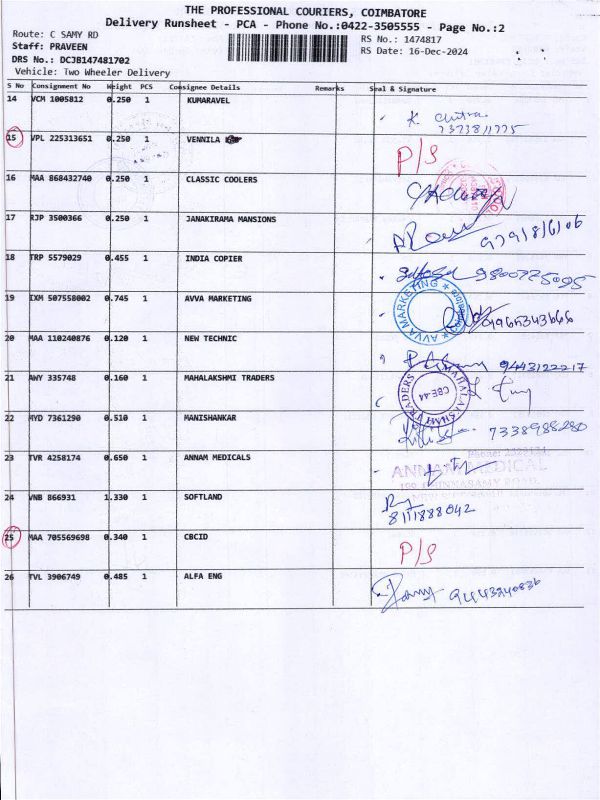 THE PROFESSIONAL COURIERS, COIMBATORE
Delivery Runsheet - PCA - Phone No.:0422-3505555 - Page No.:2
Route: C SAMY RD
RS No.: 1474817
Staff: PRAVEEN
RS Date: 16-Dec-2024
DRS No.: DCJB147481702
Vehicle: Two Wheeler Delivery
S No Consignment No Weight PCS Consignee Details Remarks Seal & Signature
14 VCM 1005812 0.250 1 KUMARAVEL
K Chitra
7373811775
15 VPL 225313651 0.250 1 VENNILA P/S
16 MAA 868432740 0.250 1 CLASSIC COOLERS
17 RJP 3500366 0.250 1 JANAKIRAMA MANSIONS 9791816106
18 TRP 5579029 0.455 1 INDIA COPIER 9800725095
19 IXM 507558002 0.745 1 AVVA MARKETING
AVVA MARKETING
20 MAA 110240876 0.120 1 NEW TECHNIC 9443122217
21 AWY 335748 0.160 1 MAHALAKSHMI TRADERS
MAHALAKSHMI TRADERS
CBE-44
22 MYD 7361290 0.510 1 MANISHANKAR 7338988280
23 TVR 4258174 0.650 1 ANNAM MEDICALS
ANNAM MEDICAL
24 VNB 866931 1.330 1 SOFTLAND
8111888042
25 MAA 705569698 0.340 1 CBCID P/S
26 TVL 3906749 0.485 1 ALFA ENG 9443240836